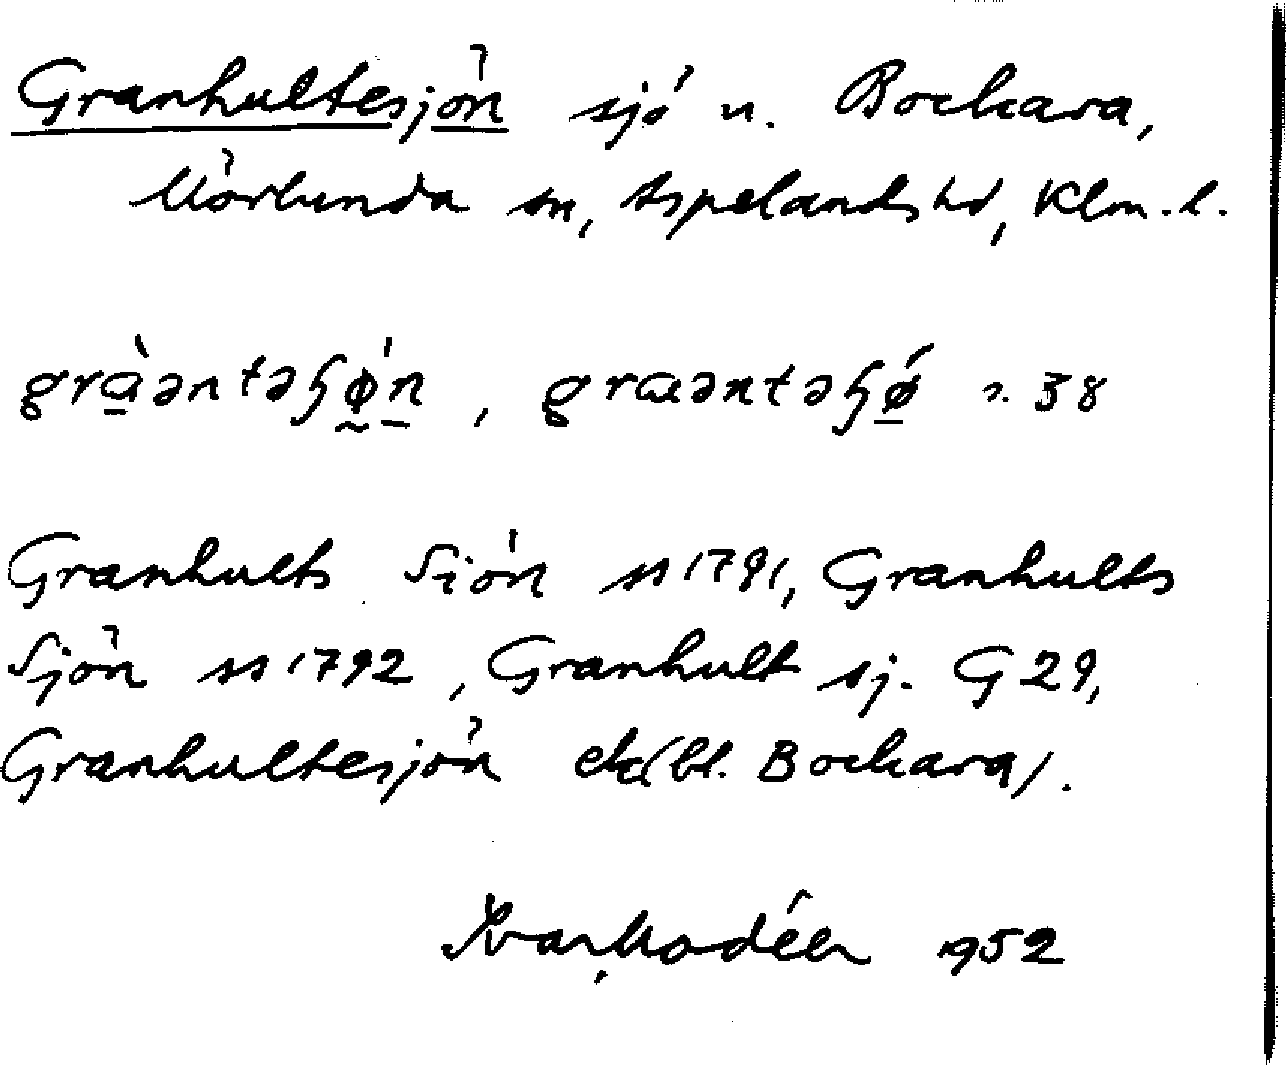 Granhultesjön sjö n. Bockara,
Mörlunda sn, Aspelands hd, Klm. l.
grɑ̀əntəɧø̀n, grɑəntəɧǿ s. 38
Granhults Siön ss 1791, Granhults
Sjön ss 1792, Granhult sj. G 29,
Granhultesjön ek (bl. Bockara).
Ivar Modéer 1952